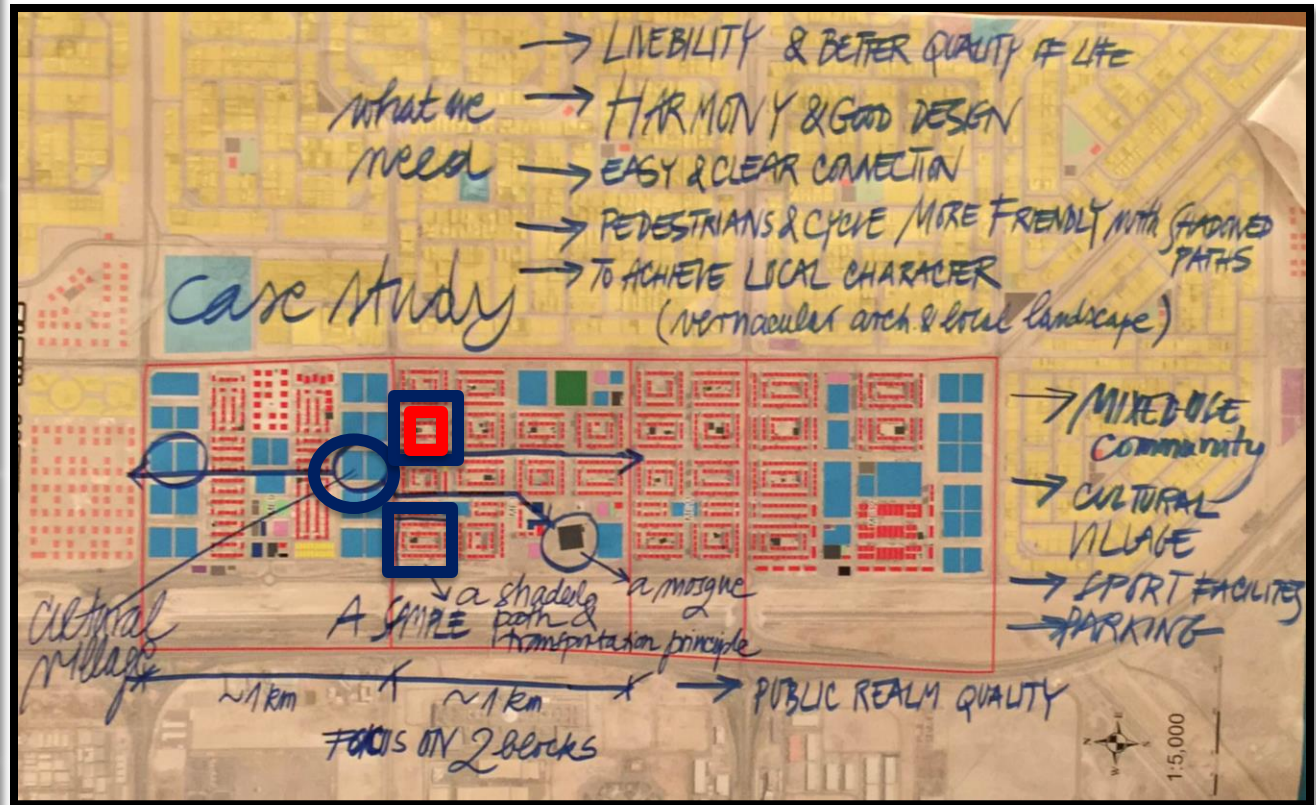 → LIVEBILITY & BETTER QUALITY OF LIFE
what we → HARMONY & GOOD DESIGN
need → EASY & CLEAR CONNECTION
→ PEDESTRIANS & CYCLE MORE FRIENDLY with SHADOWED
PATHS
Case study → TO ACHIEVE LOCAL CHARACTER
(vernacular arch. & local landscape)
→ MIXED-USE
Community
→ CULTURAL
VILLAGE
→ SPORT FACILITES
→ PARKING
Cultural
village
A SAMPLE
a shaded
path &
transportation principle
a mosque
~1 km
~1 km
→ PUBLIC REALM QUALITY
FOCUS ON 2 blocks
1:5,000